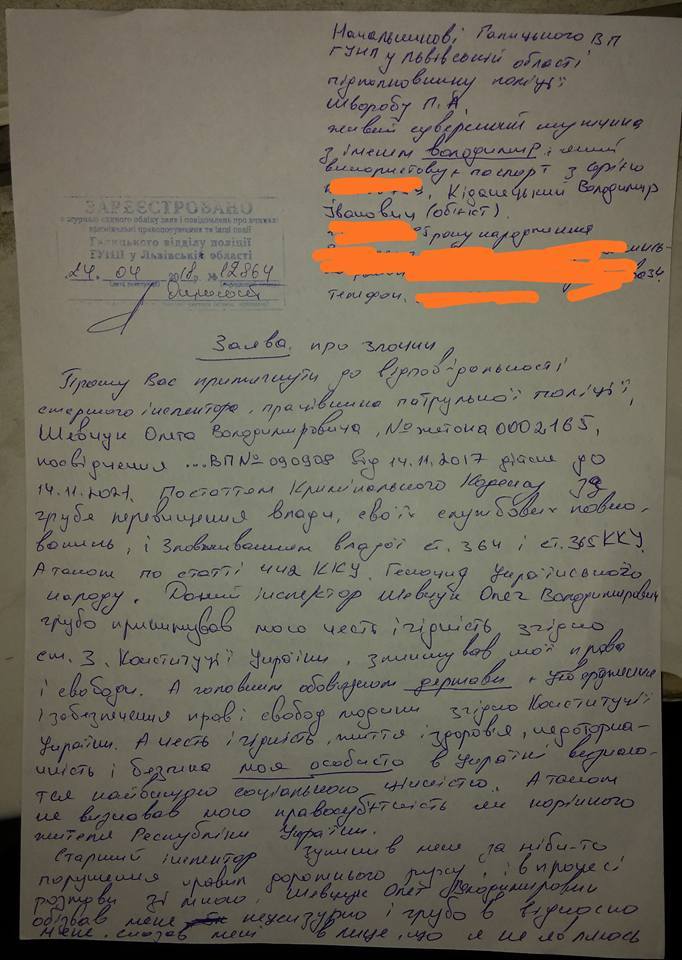 Начальникові Галицького ВП
ГУНП у Львівській області
підполковнику поліції
Шворобу П.А.
живий суверенний мужчина
з іменем володимир, і який
використовую паспорт з серією
, Кіданецький Володимир
Іванович (обніст).
країну народження
Телефон.
ЗАРЕЄСТРОВАНО
в журналі єдиного обліку заяв і повідомлень про вчинені
кримінальні правопорушення та інші події
Галицького відділу поліції
ГУНП у Львівській області
24. 04 2018р. № 12864
Заява про злочин
Прошу Вас притягнути до відповідальності
старшого інспектора, працівника патрульної поліції,
Шевчук Олега Володимировича, № жетона 0002165,
посвідчення ...ВП № 090908 від 14.11.2017 дійсне до
14.11.2021. По статтям Кримінального Кодексу за
грубе перевищення влади, своїх службових повно-
важень, і Зловживанням владою ст. 364 і ст. 365 ККУ.
А також по статті 442 ККУ. Геноцид Українського
народу. Даний інспектор Шевчук Олег Володимирович
грубо принижував мого честь і гідність згідно
ст. 3. Конституції України, знижував мої права
і свободи. А головним обовязком держави є утвердження
і забезпечення прав і свобод людини згідно Конституції
України. А честь і гідність, життя і здоров'я, недоторка-
ність і безпека моя особисто в Україні визнаю-
тся найвищою соціальною цінністю. А також
не визнавав мого правосубєктність як корінного
жителя Республіки України.
Старший інспектор зупинив мене за ніби-то
порушення правил дорожнього руху, і в процесі
розмови зі мною, Шевчук Олег Володимирович
обізвав мене нецензурно і грубо в відносно
мене, сказав мені в лице, що я не являюсь